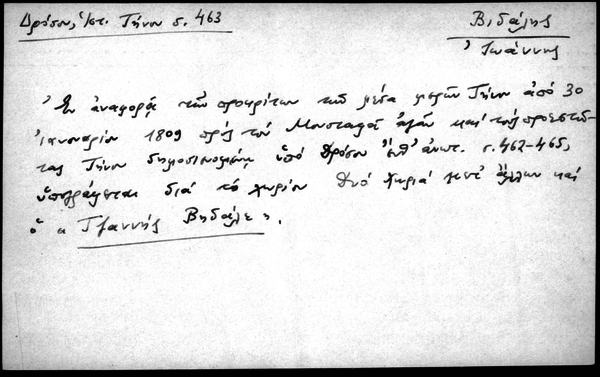 Δρόσου, Ἱστ. Τήνου σ. 463
Βιδάλης
Ἰωάννης
Ἐν ἀναφορᾷ τῶν προκρίτων τῶν μέσα μερῶν Τήνου ἀπό 30
Ἰανουαρίου 1809 πρός τόν Μουσταφᾶ ἀγᾶν καί τούς προεστῶ-
τας Τήνου δημοσιευομένῃ ὑπό Δρόσου ἔνθ' ἀνωτ. σ. 462-465,
ὑπογράφεται διά τό χωρίον Δυό Χωριά μετ' ἄλλων καί
ὁ "Γιαννής Βηδάλες".